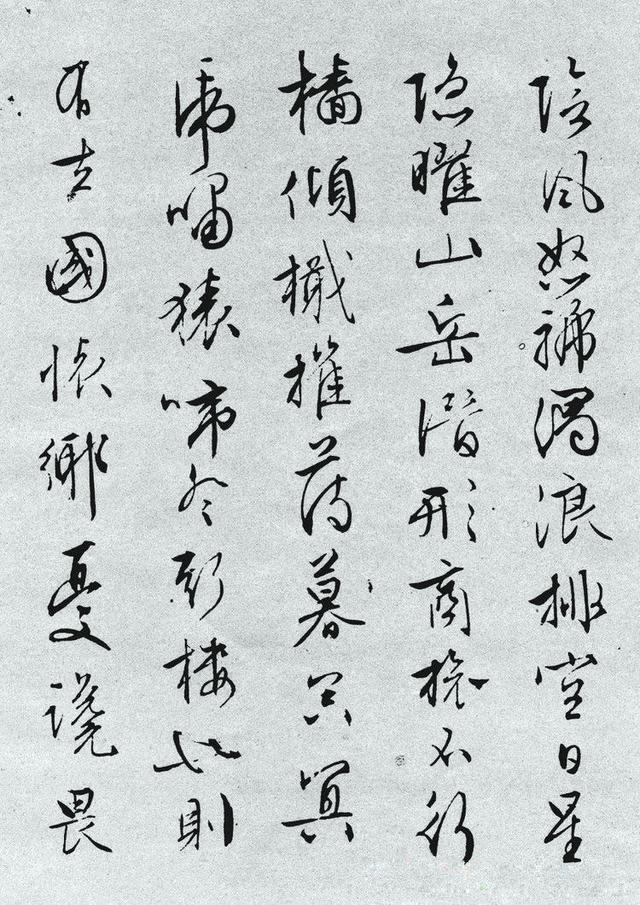 陰風怒號濁浪排空日星
隐曜山岳潛形商旅不行
檣傾檝摧薄暮冥冥
虎嘯猿啼登斯樓也則
有去國懷鄉憂讒畏